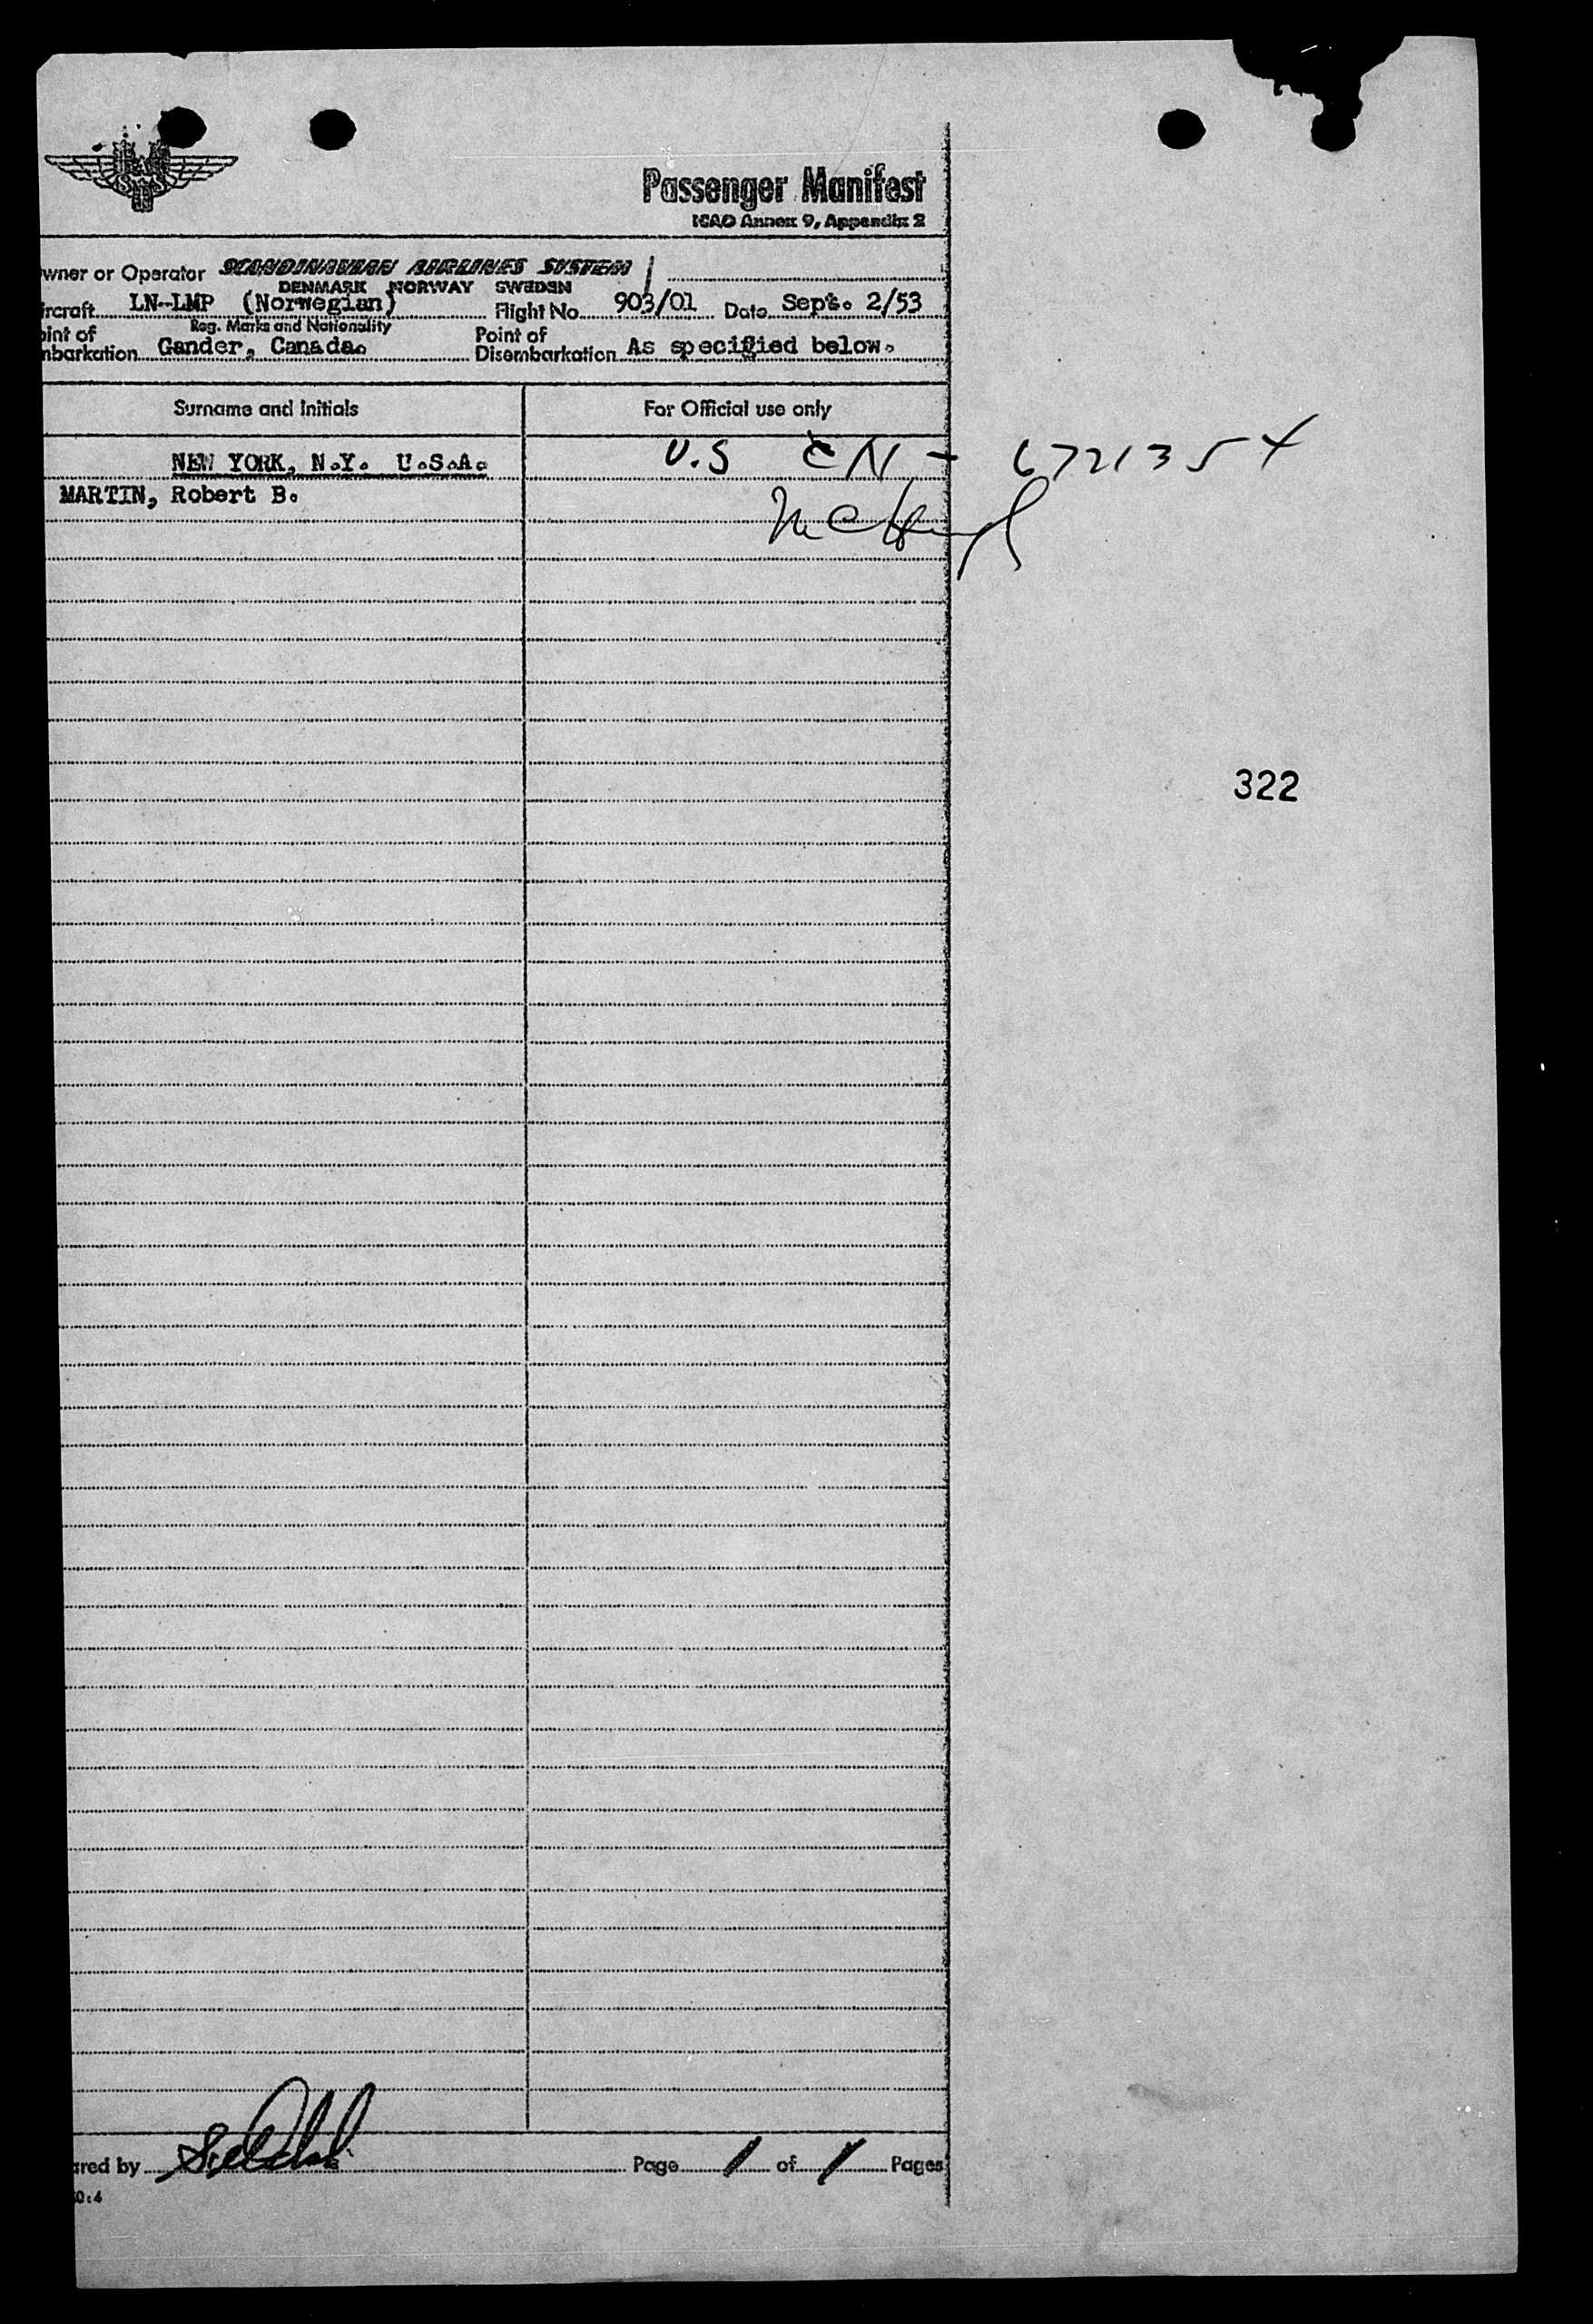 SAS
Passenger Manifest
ICAO Annex 9, Appendix 2
wner or Operator SCANDINAVIAN AIRLINES SYSTEM
DENMARK NORWAY SWEDEN
ircraft LN-LMP (Norwegian) Flight No. 903/01 Date Sept. 2/53
Reg. Marks and Nationality
oint of
mbarkation Gander, Canada.
Point of
Disembarkation As specified below.
Surname and Initials For Official use only
NEW YORK, N.Y. U.S.A. U.S CN - 6721354
MARTIN, Robert B.
322
ared by Page 1 of 1 Pages
50:4